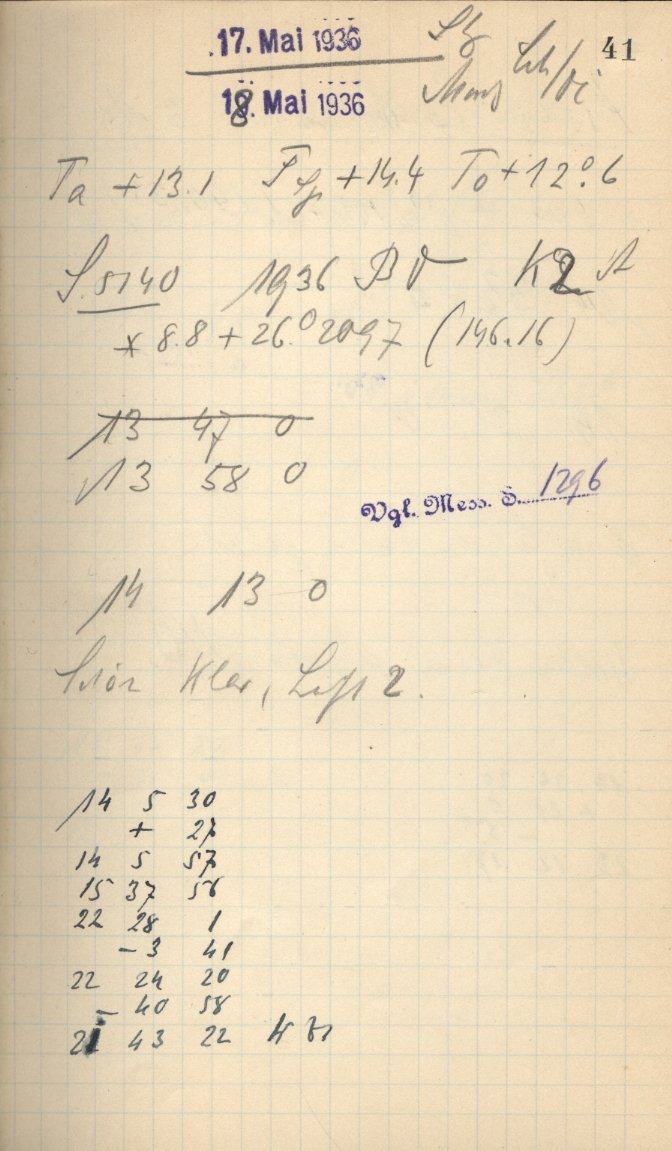 17. Mai 1936 41
18. Mai 1936
Ta +13.1 +14.4 To +12°.6
S. 5140 1936 BV K2
* 8.8 + 26.°2097 (146.16)
13 47 0
13 58 0
Vgl. Mess. S. 1296
14 13 0
klar, Luft 2.
14 5 30
+ 27
14 5 57
15 37 56
22 28 1
- 3 41
22 24 20
- 40 58
21 43 22